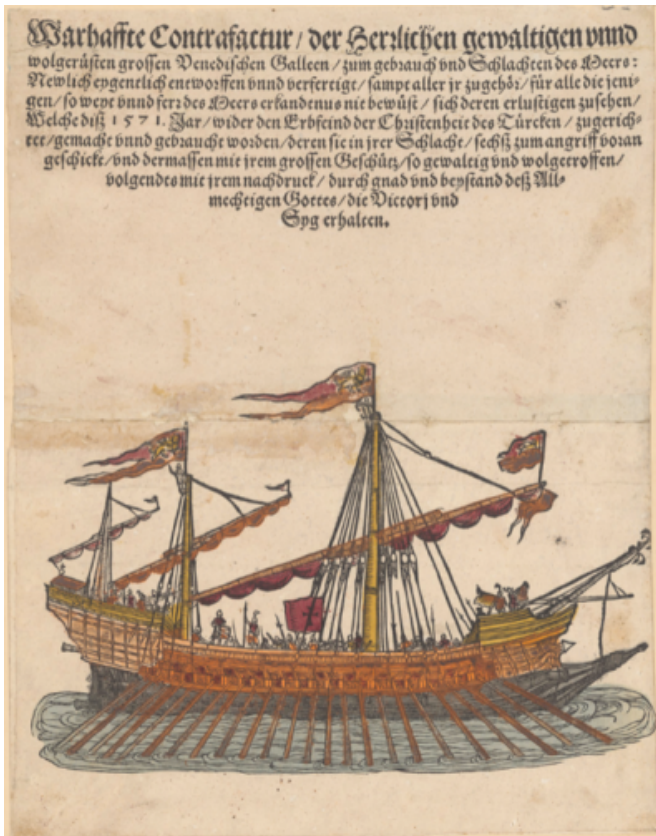 Warhaffte Contrafactur / der Herrlichen gewaltigen vnnd
wolgerüsten grossen Venedischen Galleen / zum gebrauch vnd Schlachten des Meers:
Newlich eygentlich entworffen vnnd verfertigt / sampt aller jr zugehör / für alle die jeni-
gen / so weyt vnnd ferr des Meers erkandtnus nie bewüst / sich deren erlustigen zusehen /
Welche diß 1571. Jar / wider den Erbfeind der Christenheit des Türcken / zugerich-
tet / gemacht vnnd gebraucht worden / deren sie in jrer Schlacht / sechß zum angriff voran
geschickt / vnd dermassen mit jrem grossen Geschütz / so gewaltig vnd wolgetroffen /
volgendts mit jrem nachdruck / durch gnad vnd beystand deß All-
mechtigen Gottes / die Victorj vnd
Syg erhalten.